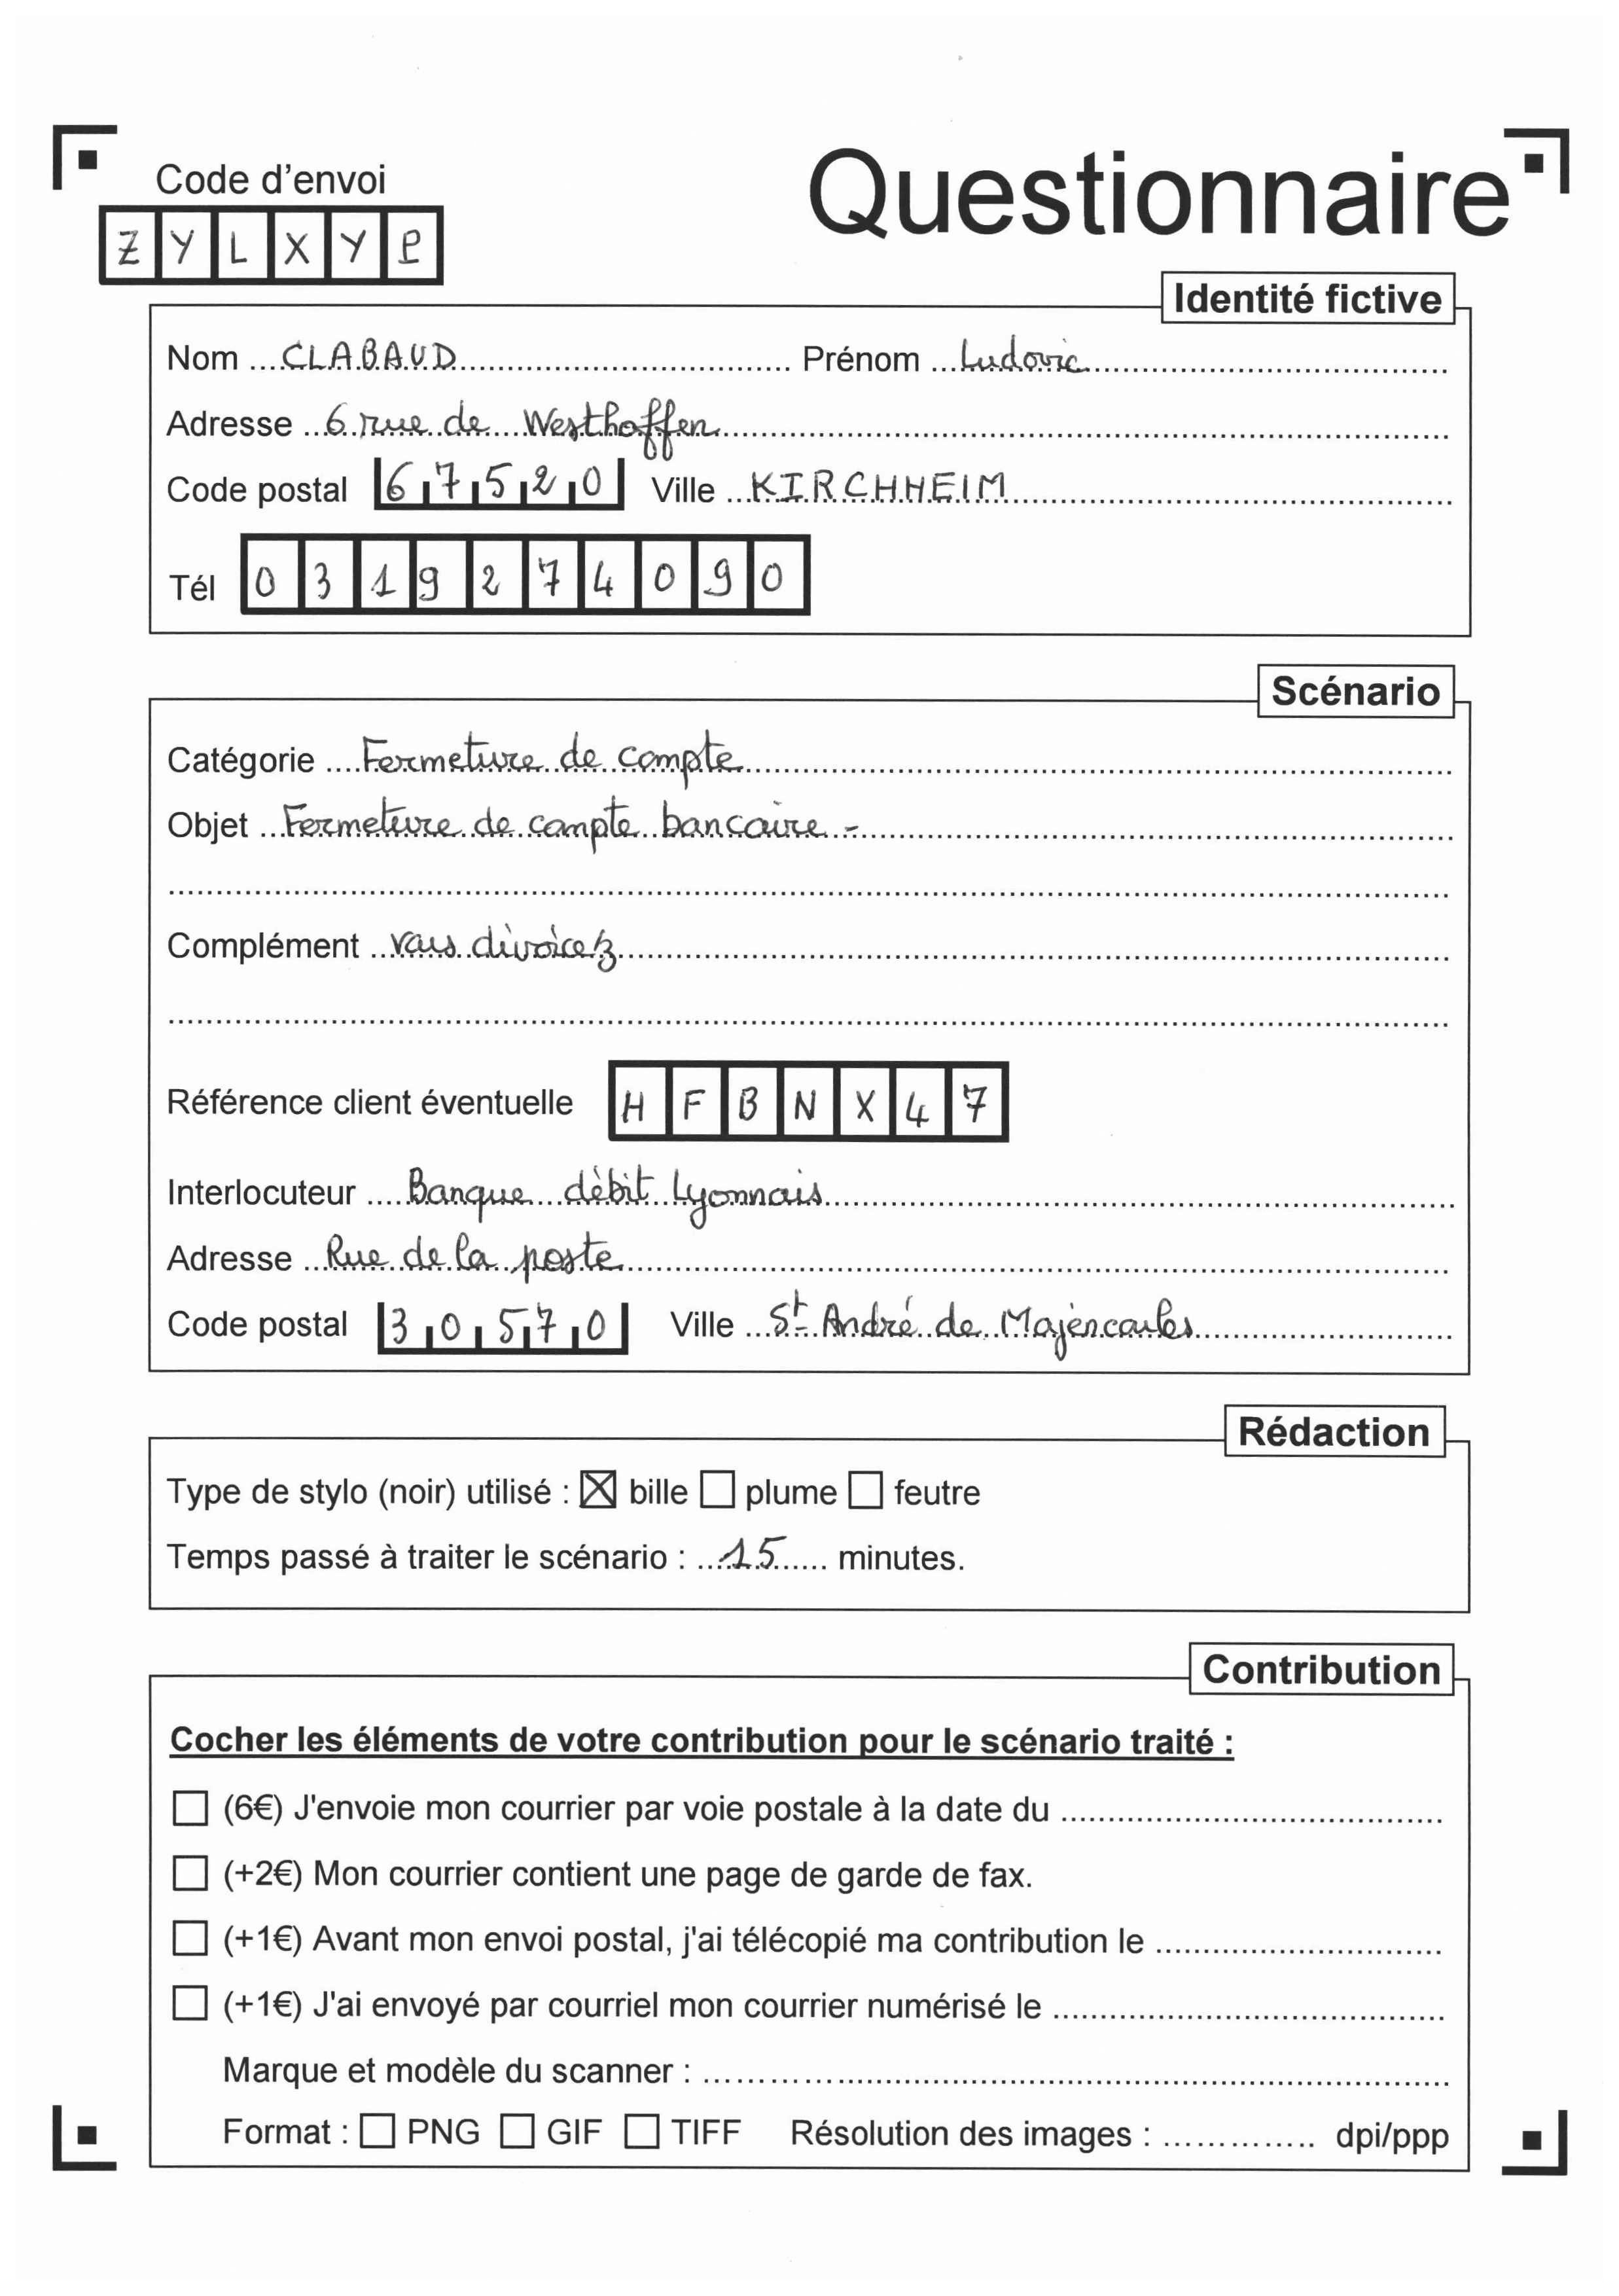 Code d'envoi
Questionnaire
Z Y L X Y P
Identité fictive
Nom CLABAUD Prénom Ludovic
Adresse 6 rue de Westhoffen
Code postal 67520 Ville KIRCHHEIM
Tél 0319274090
Scénario
Catégorie Fermeture de compte
Objet Fermeture de compte bancaire -
Complément vous divorcez
Référence client éventuelle HFBNX47
Interlocuteur Banque débit Lyonnais
Adresse Rue de la poste
Code postal 30570 Ville St André de Majencoules
Rédaction
Type de stylo (noir) utilisé : ☒ bille ☐ plume ☐ feutre
Temps passé à traiter le scénario : 15 minutes.
Contribution
Cocher les éléments de votre contribution pour le scénario traité :
☐ (6€) J'envoie mon courrier par voie postale à la date du
☐ (+2€) Mon courrier contient une page de garde de fax.
☐ (+1€) Avant mon envoi postal, j'ai télécopié ma contribution le
☐ (+1€) J'ai envoyé par courriel mon courrier numérisé le
Marque et modèle du scanner :
Format : ☐ PNG ☐ GIF ☐ TIFF Résolution des images : dpi/ppp